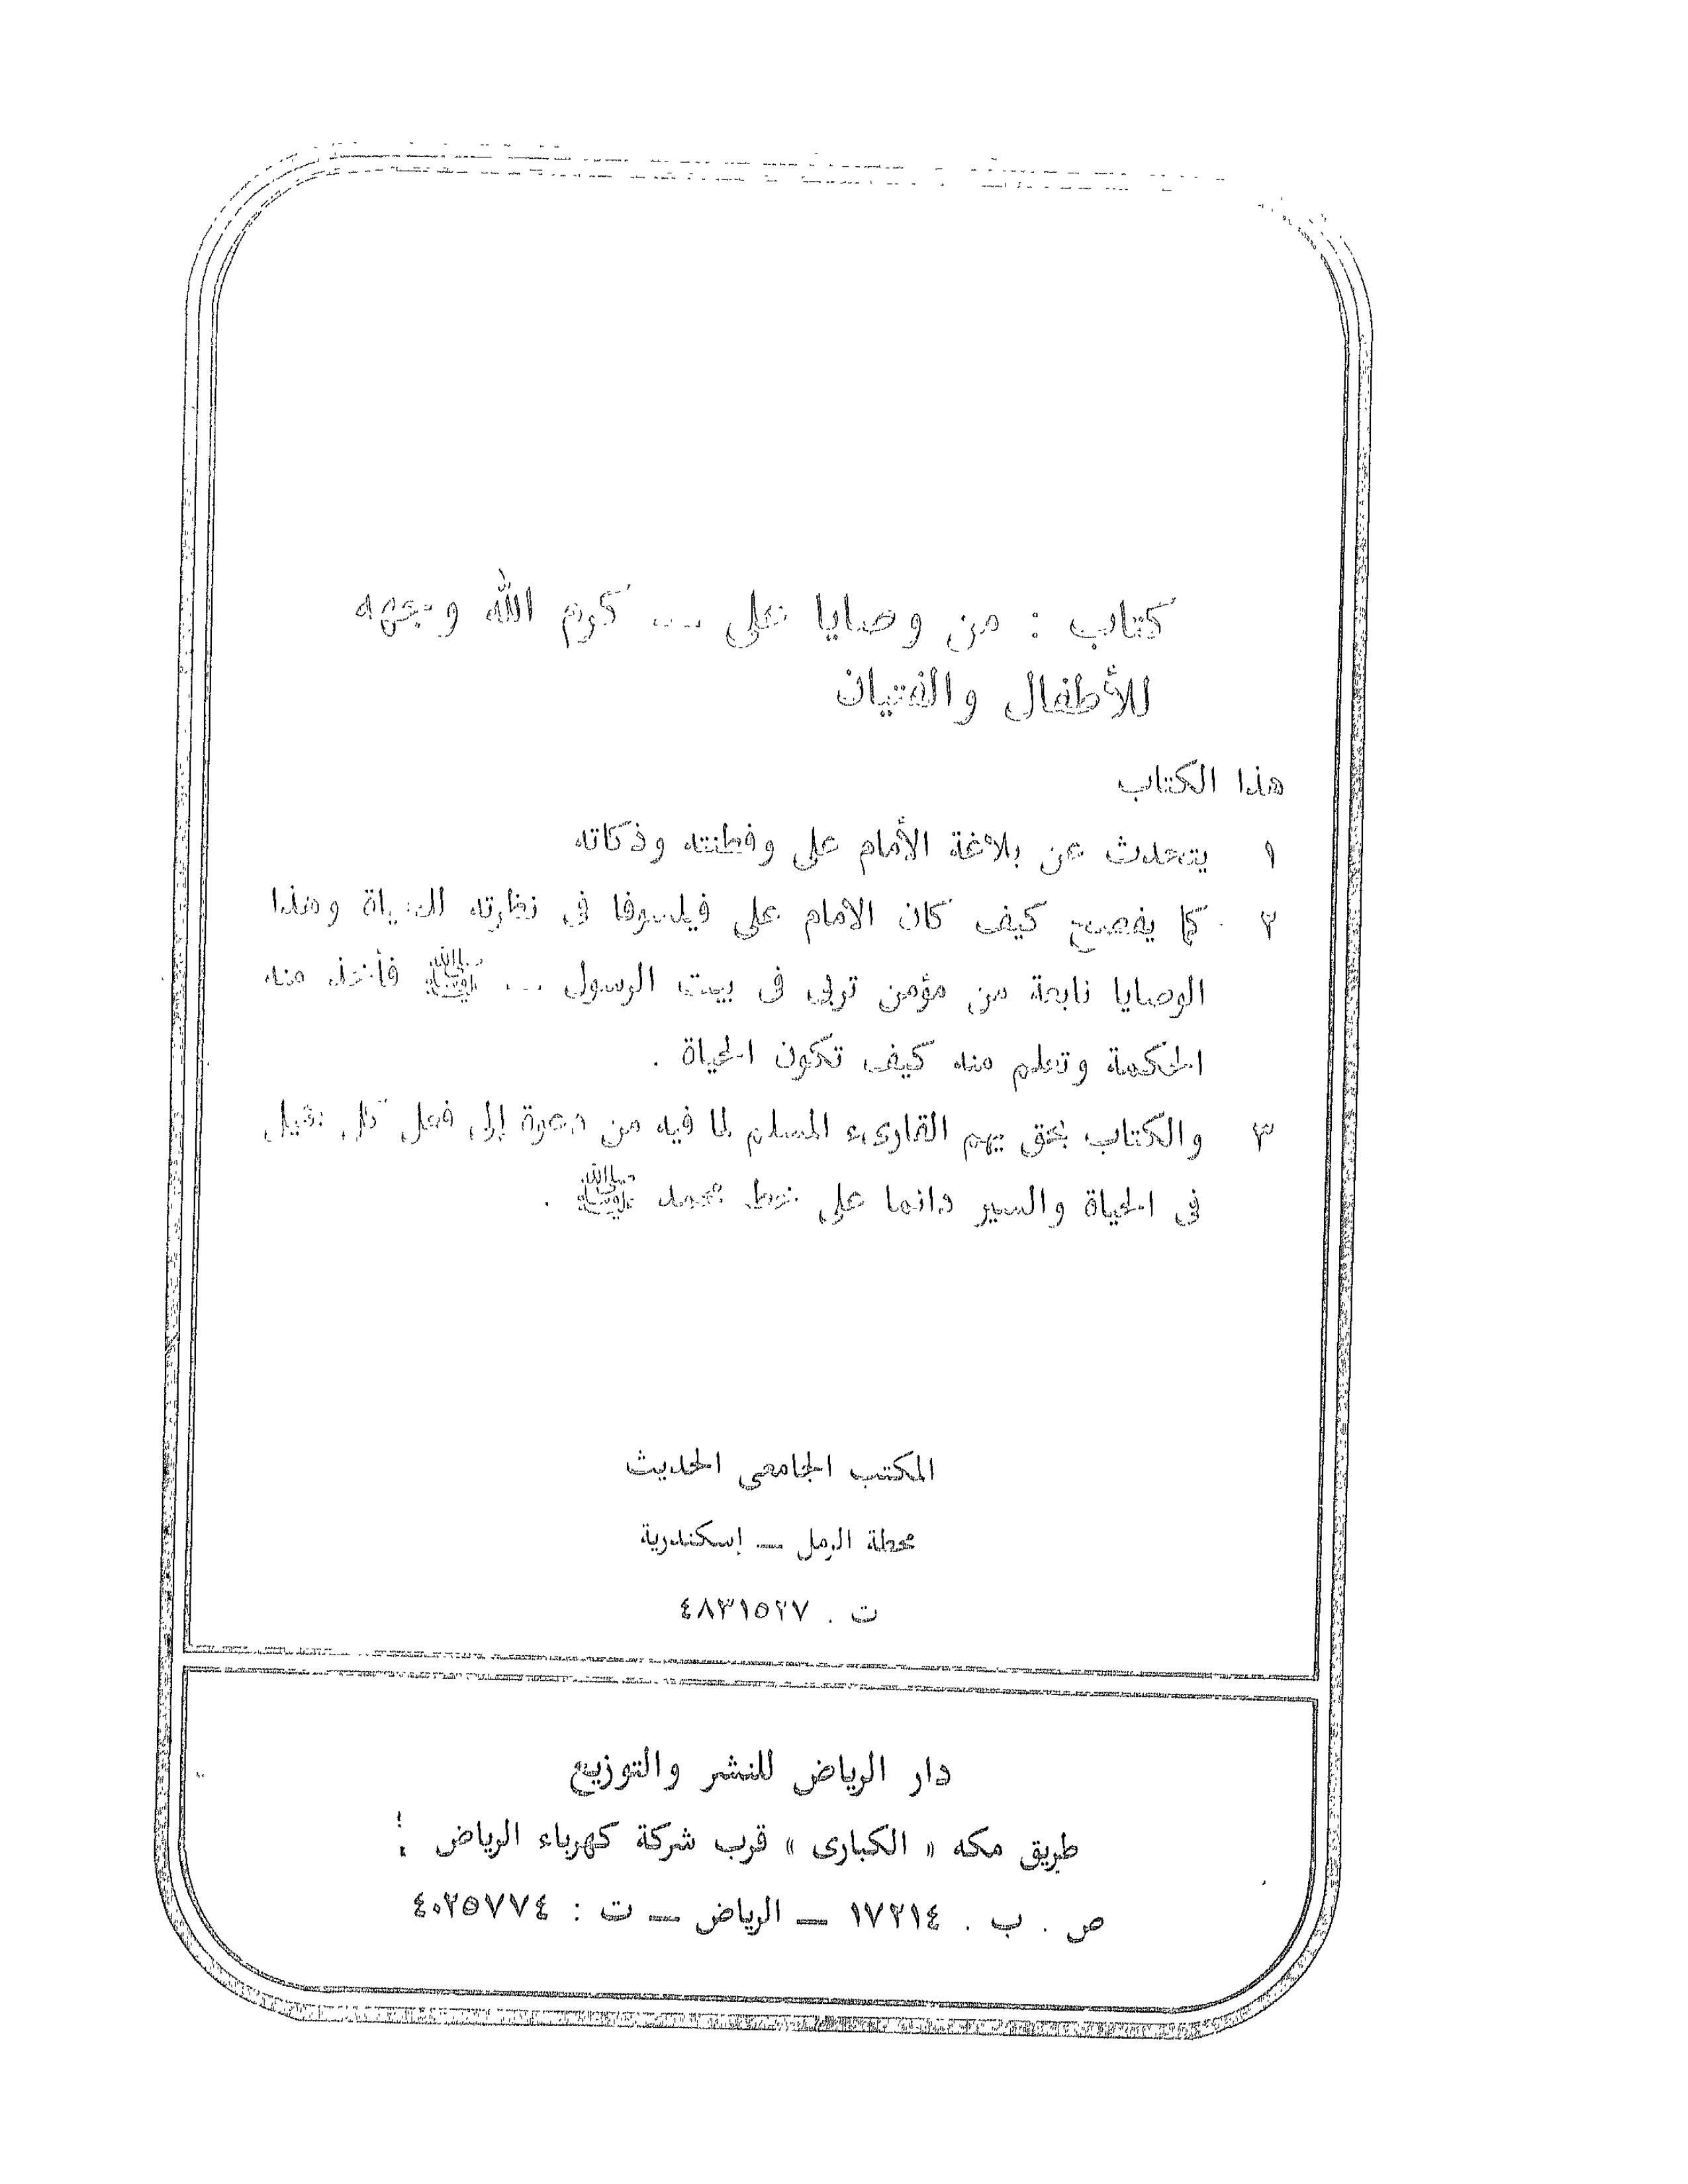 كتاب : من وصايا على ... كرم الله وجهه
للأطفال والفتيان
هذا الكتاب
١ يتحدث عن بلاغة الأمام على وفطنته وذكائه
٢ كما يفصح كيف كان الامام على فيلسوفا فى نظرته للحياة وهذا
الوصايا نابعة من مؤمن تربى فى بيت الرسول ... ﷺ فأخذ منه
الحكمة وتعلم منه كيف تكون الحياة .
٣ والكتاب بحق يهم القارىء المسلم لما فيه من دعوة إلى فعل كل
فى الحياة والسير دائما على خط محمد ﷺ .
المكتب الجامعى الحديث
محطة الرمل — إسكندرية
ت . ٤٨٣١٥٢٧
دار الرياض للنشر والتوزيع
طريق مكه « الكبارى » قرب شركة كهرباء الرياض
ص . ب . ١٧٢١٤ — الرياض — ت : ٤٠٢٥٧٧٤